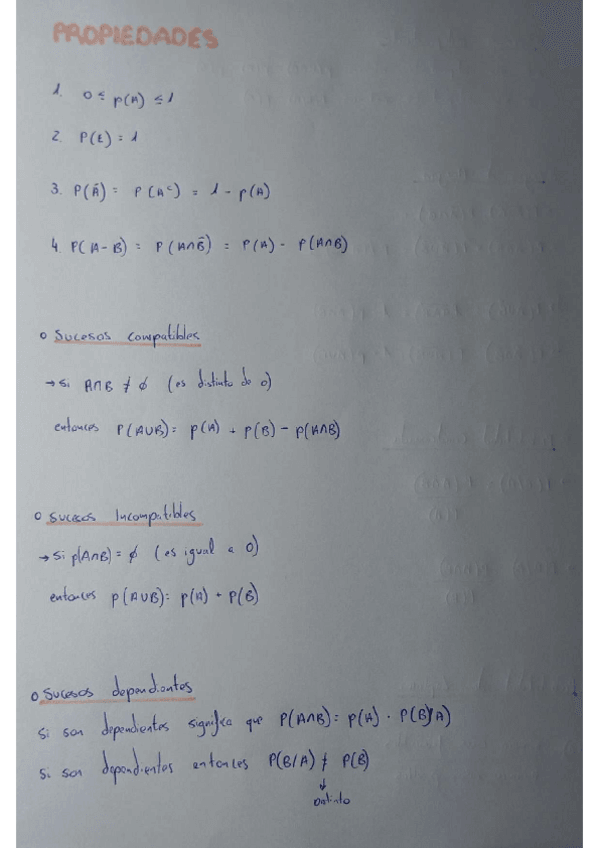 PROPIEDADES
1. 0 ≤ p(A) ≤ 1
2. P(E) = 1
3. P(Ā) = P(Aᶜ) = 1 - p(A)
4. P(A - B) = P(A∩B̄) = P(A) - P(A∩B)
o Sucesos compatibles
→ Si A∩B ≠ ∅ (es distinto de 0)
entonces P(A∪B) = p(A) + P(B) - P(A∩B)
o Sucesos Incompatibles
→ Si p(A∩B) = ∅ (es igual a 0)
entonces p(A∪B) = p(A) + P(B)
o Sucesos dependientes
Si son dependientes significa que P(A∩B) = p(A) · P(B/A)
Si son dependientes entonces P(B/A) ≠ P(B)
↓
Distinto